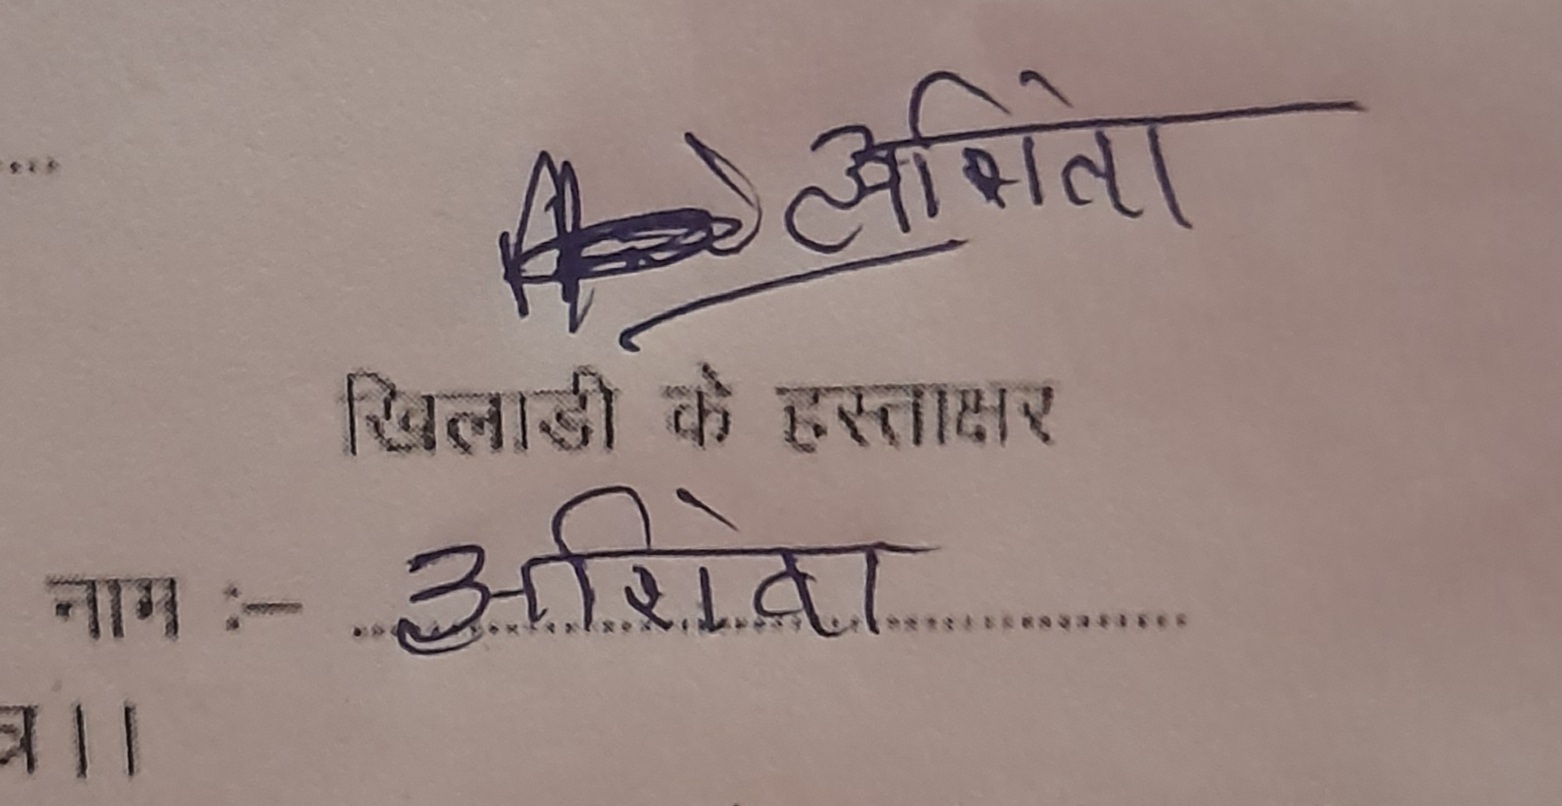 अर्शिता
खिलाडी के हस्ताक्षर
नाम :- अर्शिता
त्र।।